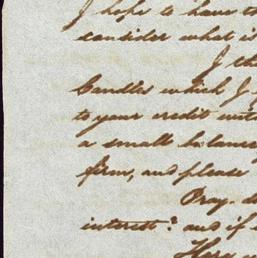 I hope to have to
consider what i
I th
Candles which I
to your credit wit
a small balance
firm, and please
Pray. d
interest? and if
Here